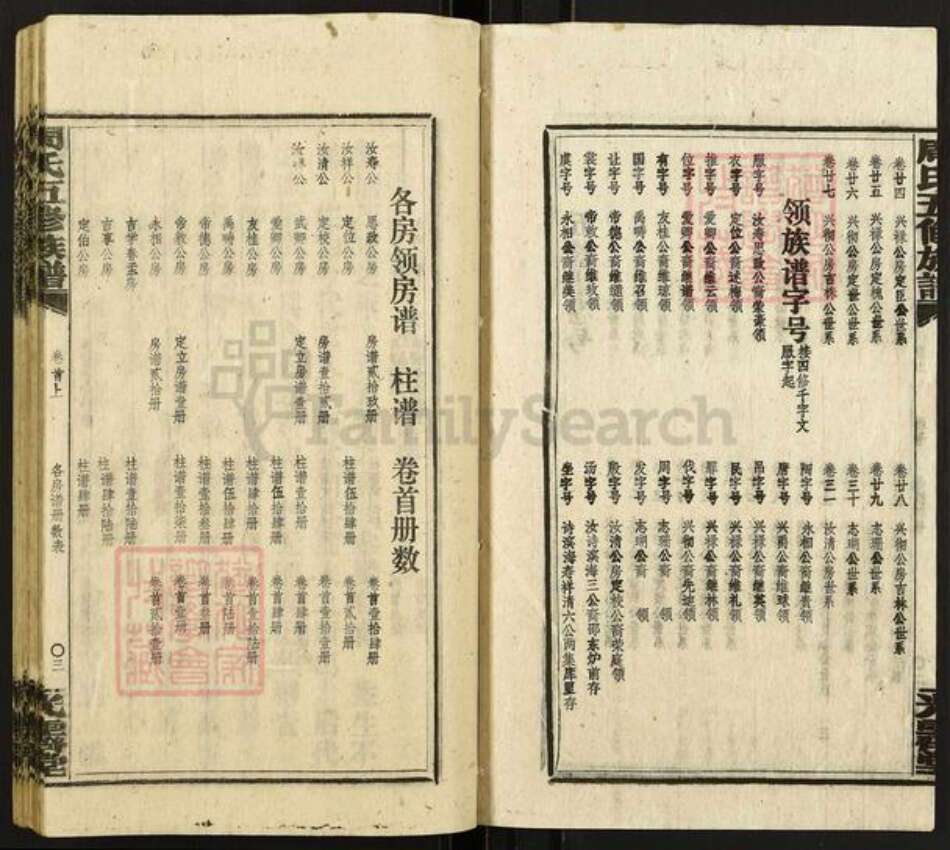 卷廿四 兴禄公房定臣公世系
卷廿五 兴禄公房定槐公世系
卷廿六 兴彻公房定世公世系
卷廿七 兴彻公房吉林公世系
卷廿八 兴彻公房吉林公世系
卷廿九 志珊公世系
卷三十 志明公世系
卷三一 汝清公房世系
领族谱字号 接四修千字文服字起
服字号 汝海思敬公裔荣豪领
衣字号 定位公裔述梅领
推字号 爱卿公裔继云领
位字号 爱卿公裔继谱领
有字号 友桂公裔维球领
国字号 禹畴公裔维召领
让字号 帝德公裔维德领
裳字号 帝敦公裔维玫领
虞字号 永相公裔继美领
陶字号 永相公裔继贵领
唐字号 兴爵公裔维球领
吊字号 兴禄公裔继英领
民字号 兴禄公裔维礼领
罪字号 兴禄公裔继林领
伐字号 兴彻公裔先雄领
周字号 志珊公裔 领
发字号 志明公裔 领
殷字号 汝清公房定校公裔荣庭领
汤字号 汝诗滨海三公裔邵东炉前存
坐字号 诗滨海寿祥清六公两集库里存
各房领房谱 柱谱 卷首册数
汝寿公 思敬公房 房谱贰拾玖册 卷首壹拾肆册
汝祥公 定位公房 柱谱伍拾肆册 卷首贰拾册
汝清公 定校公房 房谱壹拾贰册 卷首壹拾壹册
武卿公房 定立房谱壹册 柱谱壹拾册 卷首肆册
爱卿公房 柱谱伍拾肆册 卷首肆册
友桂公房 柱谱肆拾肆册 卷首壹拾陆册
禹畴公房 柱谱伍拾肆册 卷首陆册
帝德公房 柱谱壹拾叁册 卷首叁册
帝敦公房 定立房谱壹册 柱谱壹拾柒册 卷首壹册
永相公房 房谱贰拾册 卷首贰拾壹册
吉学春盂房 柱谱壹拾陆册
吉事公房 柱谱肆拾陆册
定伯公房 柱谱肆册
周氏五修族谱
卷首上
各房谱册数表
〇三
光霁堂
FamilySearch